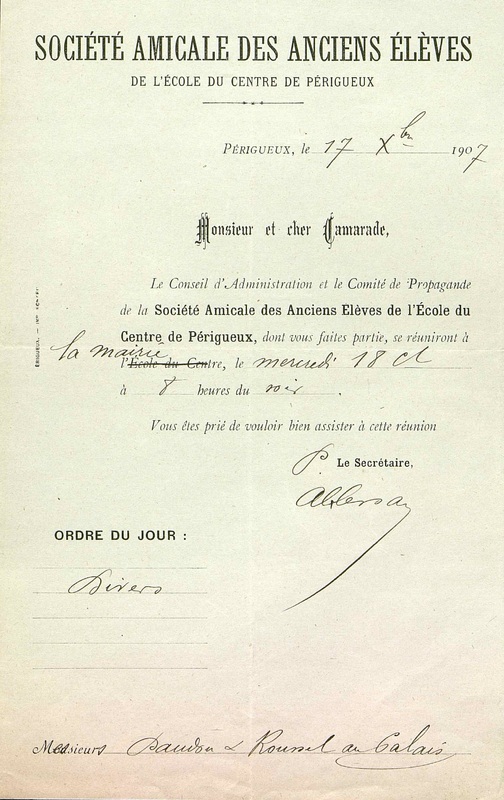 SOCIÉTÉ AMICALE DES ANCIENS ÉLÈVES
DE L'ÉCOLE DU CENTRE DE PÉRIGUEUX
PÉRIGUEUX, le 17 Xbre 1907
Monsieur et cher Camarade,
Le Conseil d'Administration et le Comité de Propagande
de la Société Amicale des Anciens Elèves de l'École du
Centre de Périgueux, dont vous faites partie, se réuniront à
la mairie
l'École du Centre, le mercredi 18 ct
à 8 heures du soir.
Vous êtes prié de vouloir bien assister à cette réunion
P. Le Secrétaire,
ORDRE DU JOUR :
Divers
Messieurs Daudou & Roussel au Palais